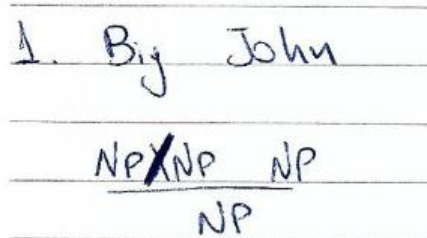 1. Big John
NP/NP NP
NP